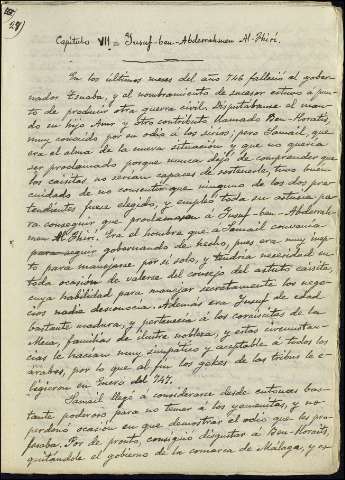 27)
Capitulo VII = Jusuf-ben-Abderrahmen Al-Fhirí.
En los últimos meses del año 746 falleció el gober-
nador Tsuaba, y el nombramiento de sucesor estuvo á pun-
to de producir otra guerra civil. Disputábanse el man-
do su hijo Amr y otro contribulo llamado Ben-Horaits,
muy conocido por su odio á los sirios; pero Samail, que
era el alma de la nueva situación y que no quería
ser proclamado porque nunca dejó de comprender que
los caisitas no serían capaces de sostenerle, tuvo buen
cuidado de no consentir que ninguno de los dos pre-
tendientes fuese elegido, y empleó toda su astucia pa-
ra conseguir que proclamasen á Jusuf-ben-Abderrah-
men Al Fhirí. Era el hombre que á Samail convenia
para seguir gobernando de hecho, pues era muy inep-
to para manejarse por si solo, y tendría necesidad en
toda ocasión de valerse del consejo del astuto caisita,
cuya habilidad para manejar secretamente los nego-
cios nadie desconocía. Además era Jusuf de edad
bastante madura, y pertenecia á los coreiscitas de la
Meca, familias de ilustre nobleza, y estas circunstan-
cias le hacían muy simpático y aceptable á todos los
árabes, por lo que al fin los gefes de las tribus le e-
ligieron en Enero del 747.
Samail llegó á considerarse desde entonces bas-
tante poderoso para no temer á los yemenitas, y no
perdonó ocasión en que demostrar el odio que les pro-
fesaba. Por de pronto, consiguió disgustar á Ben-Horaits,
quitándole el gobierno de la comarca de Málaga, y es-